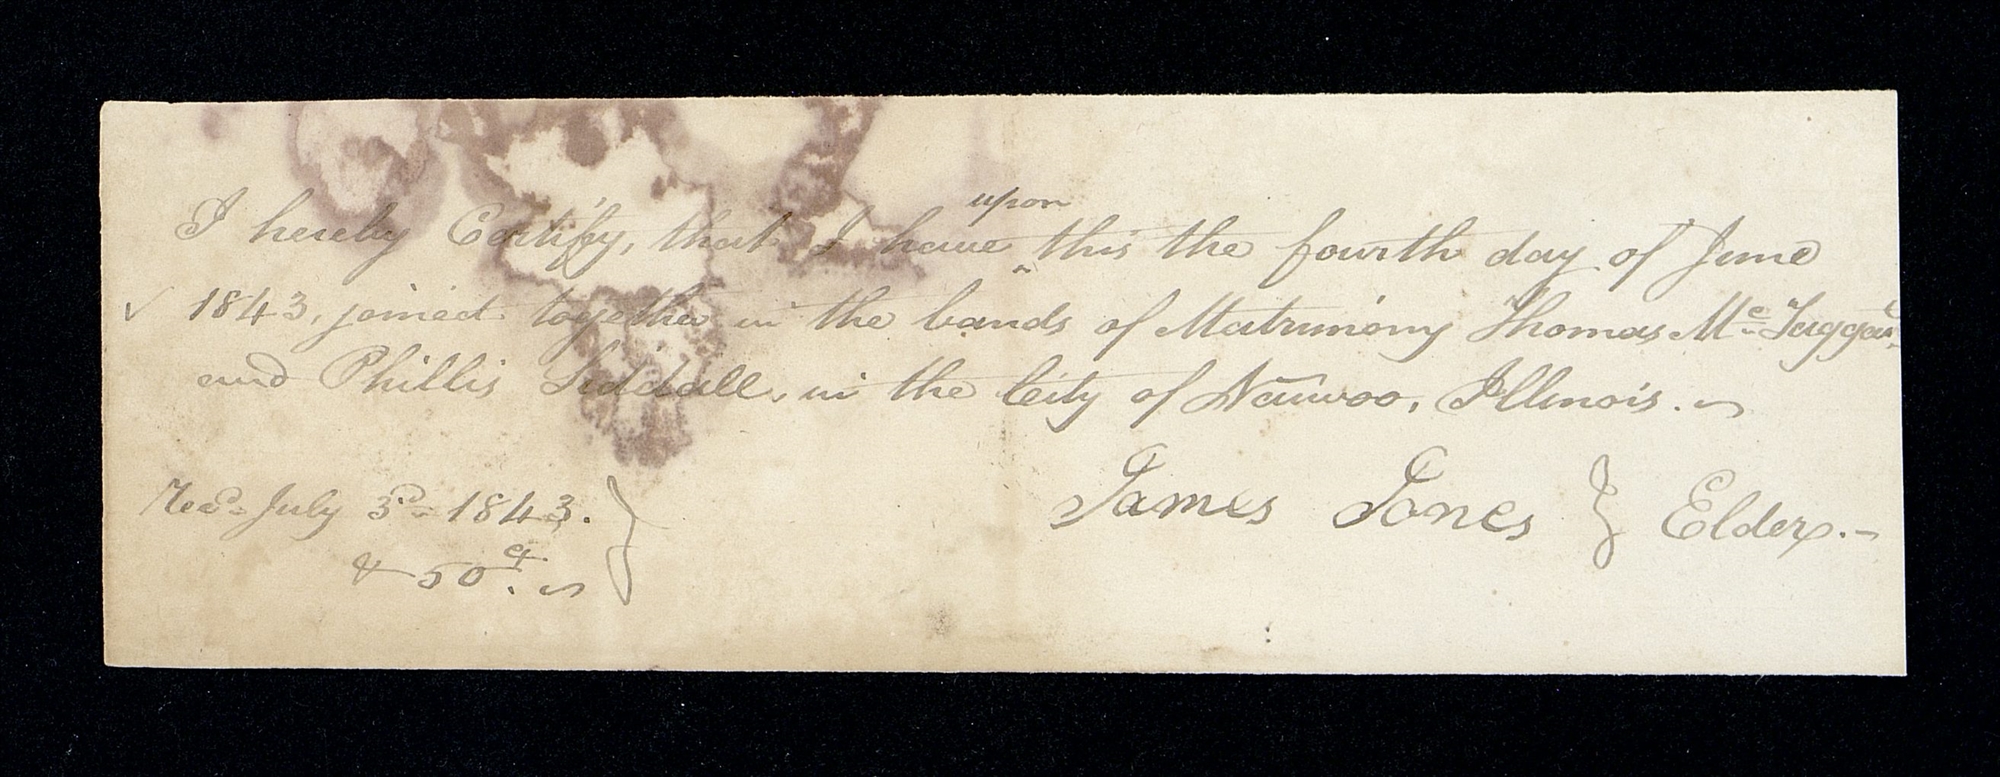 I hereby Certify, that I have ^upon this the fourth day of June
✓ 1843, joined together in the bands of Matrimony Thomas Mc Taggart
and Phillis Siddall, in the City of Nauvoo, Illinois.
James Jones } Elder.
Recd July 3d 1843.
& 50 }